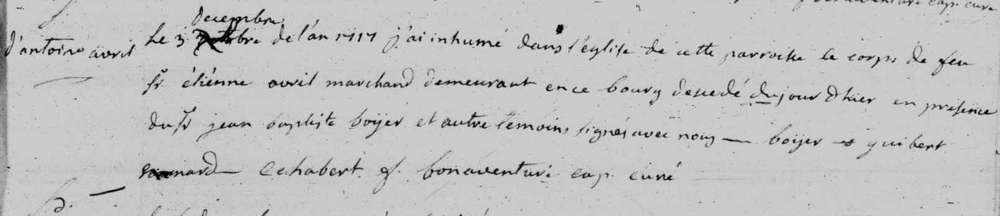 Decembre
d'antoine avril Le 3 octobre de l'an 1717 j'ai inhumé dans l'église de cette parroisse le corps de feu
sr étiénne avril marchand demeurant en ce bourg decedé du jour d'hier en presence
du sr jean baptiste boÿer et autre temoins signés avec nous — boÿer — guibert
nard — Cchabert f. bonaventure cap. curé